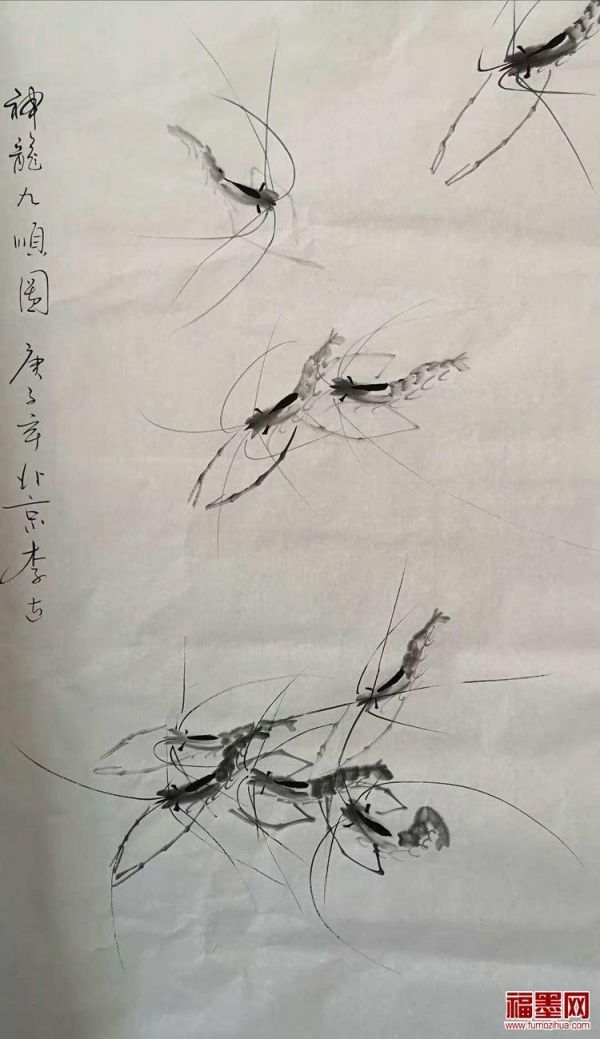 神龍九順圖 庚子年北京李志
福墨网
www.fumozihua.com